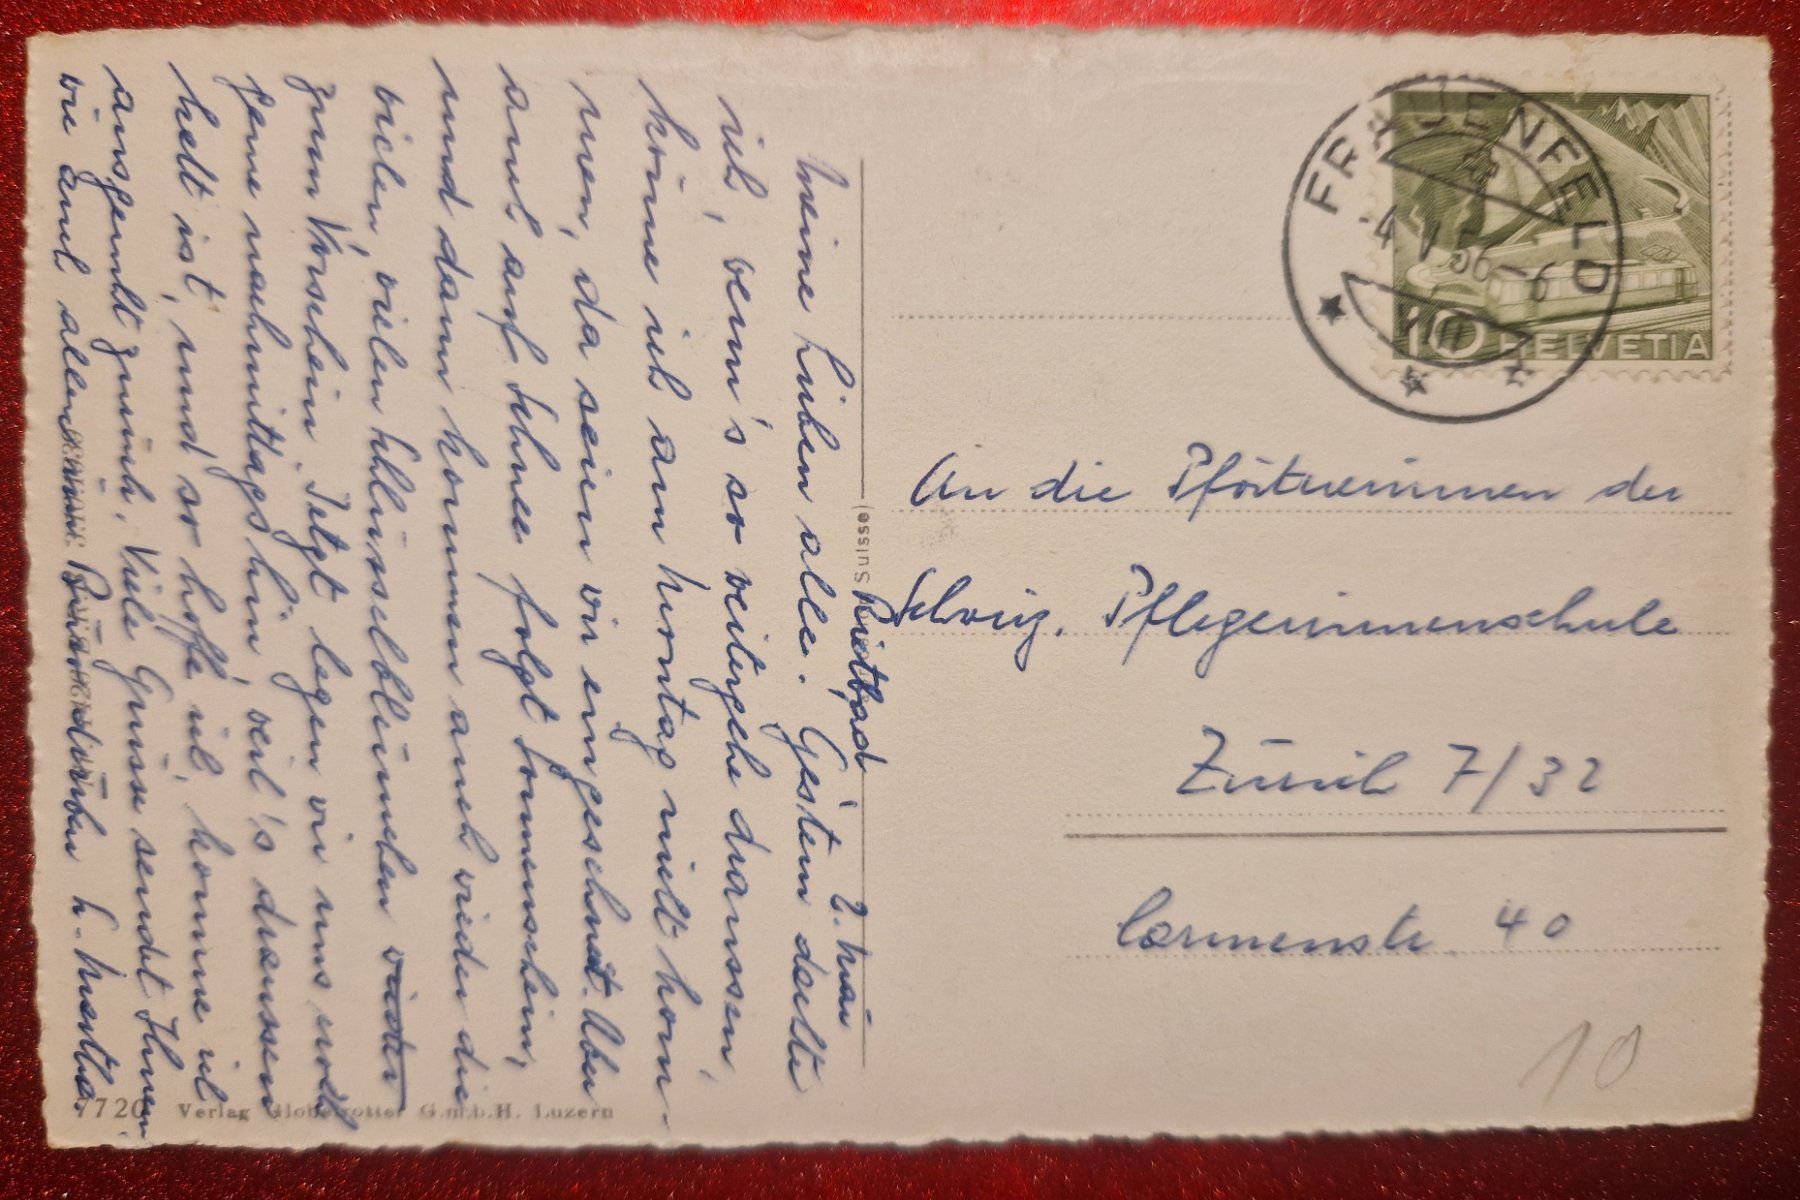 Rietbad 2. Mai
Meine Lieben alle. Gestern dachte
ich, wenn's so weitergehe draussen,
könne ich am Montag nicht kom-
men, da seien wir eingeschneit. Aber
auch auf Schnee folgt Sonnenschein,
und dann kommen auch wieder die
vielen, vielen Schlüsselblümchen
zum Vorschein. Jetzt liegen wir uns noch
gerne nachmittags hin, weil's draussen
hell ist, und so hoffe ich, komme ich
ausgeruht zurück. Viele Grüsse sendet Ihnen
wie auch allen drüben
7720 Verlag Globetrotter G.m.b.H. Luzern
Suisse)
FRAUENFELD
-4.V.56-6
10 HELVETIA
An die Pförtnerinnen der
Schweiz. Pflegerinnenschule
Zürich 7/32
Carmenstr. 40
10